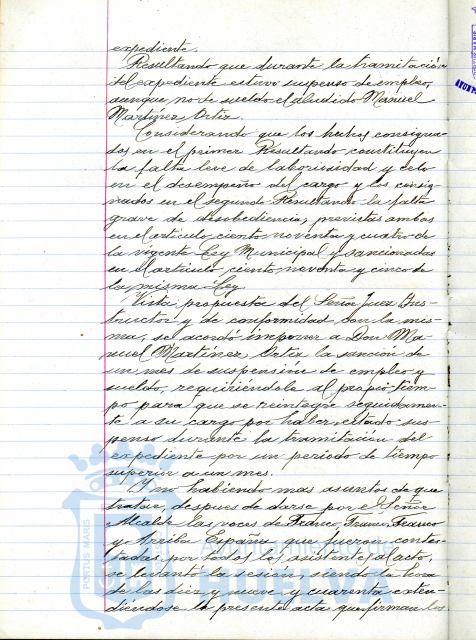 expediente.
Resultando que durante la tramitación
del expediente estuvo suspenso de empleo,
aunque no de sueldo el aludido Manuel
Martínez Ortiz.
Considerando que los hechos consigna-
dos en el primer Resultando constituyen
la falta leve de laboriosidad y celo
en el desempeño del cargo y los consig-
nados en el segundo Resultando la falta
grave de desobediencia, previstas ambas
en el artículo ciento noventa y cuatro de
la vigente Ley Municipal y sancionadas
en el artículo, ciento noventa y cinco de
la misma Ley
Vista propuesta del Señor Juez Ins-
tructor y de conformidad con la mis-
ma, se acordó imponer a Don Ma-
nuel Martínez Ortiz la sanción de
un mes de suspensión de empleo y
sueldo, requiriéndole al propio tiem-
po para que se reintegre seguidamen-
te a su cargo por haber estado sus-
penso durante la tramitación del
expediente por un periodo de tiempo
superior a un mes.
Y no habiendo mas asuntos de que
tratar, despues de darse por el Señor
Alcalde las voces de Franco, Franco, Franco
y Arriba España que fueron contes-
tadas por todos los asistentes al acto,
se levantó la sesión, siendo la hora
de las diez y nueve y cuarenta exten-
diéndose la presente acta que firman los
PORTUS MARIS